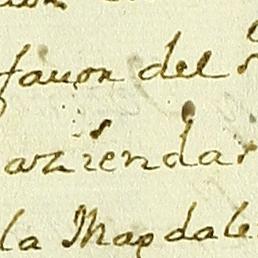 fauor del
azienda
la Magdale